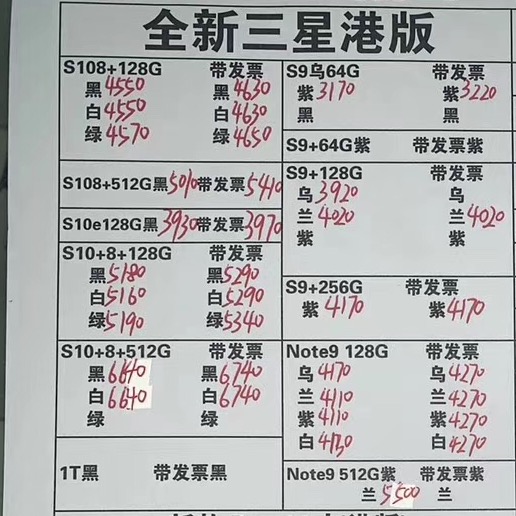 全新三星港版
S108+128G 带发票
黑4550 黑4630
白4550 白4630
绿4570 绿4650
S108+512G黑5010带发票5410
S10e128G黑3930带发票3970
S10+8+128G 带发票
黑5180 黑5290
白5160 白5290
绿5190 绿5340
S10+8+512G 带发票
黑6640 黑6740
白6640 白6740
绿 绿
1T黑 带发票黑
S9乌64G 带发票
紫3170 紫3220
黑 黑
S9+64G紫 带发票紫
S9+128G 带发票
乌3920 乌
兰4020 兰4020
紫 紫
S9+256G 带发票
紫4170 紫4170
Note9 128G 带发票
乌4170 乌4270
兰4110 兰4270
紫4110 紫4270
白4130 白4270
Note9 512G紫 带发票紫
兰5500 兰